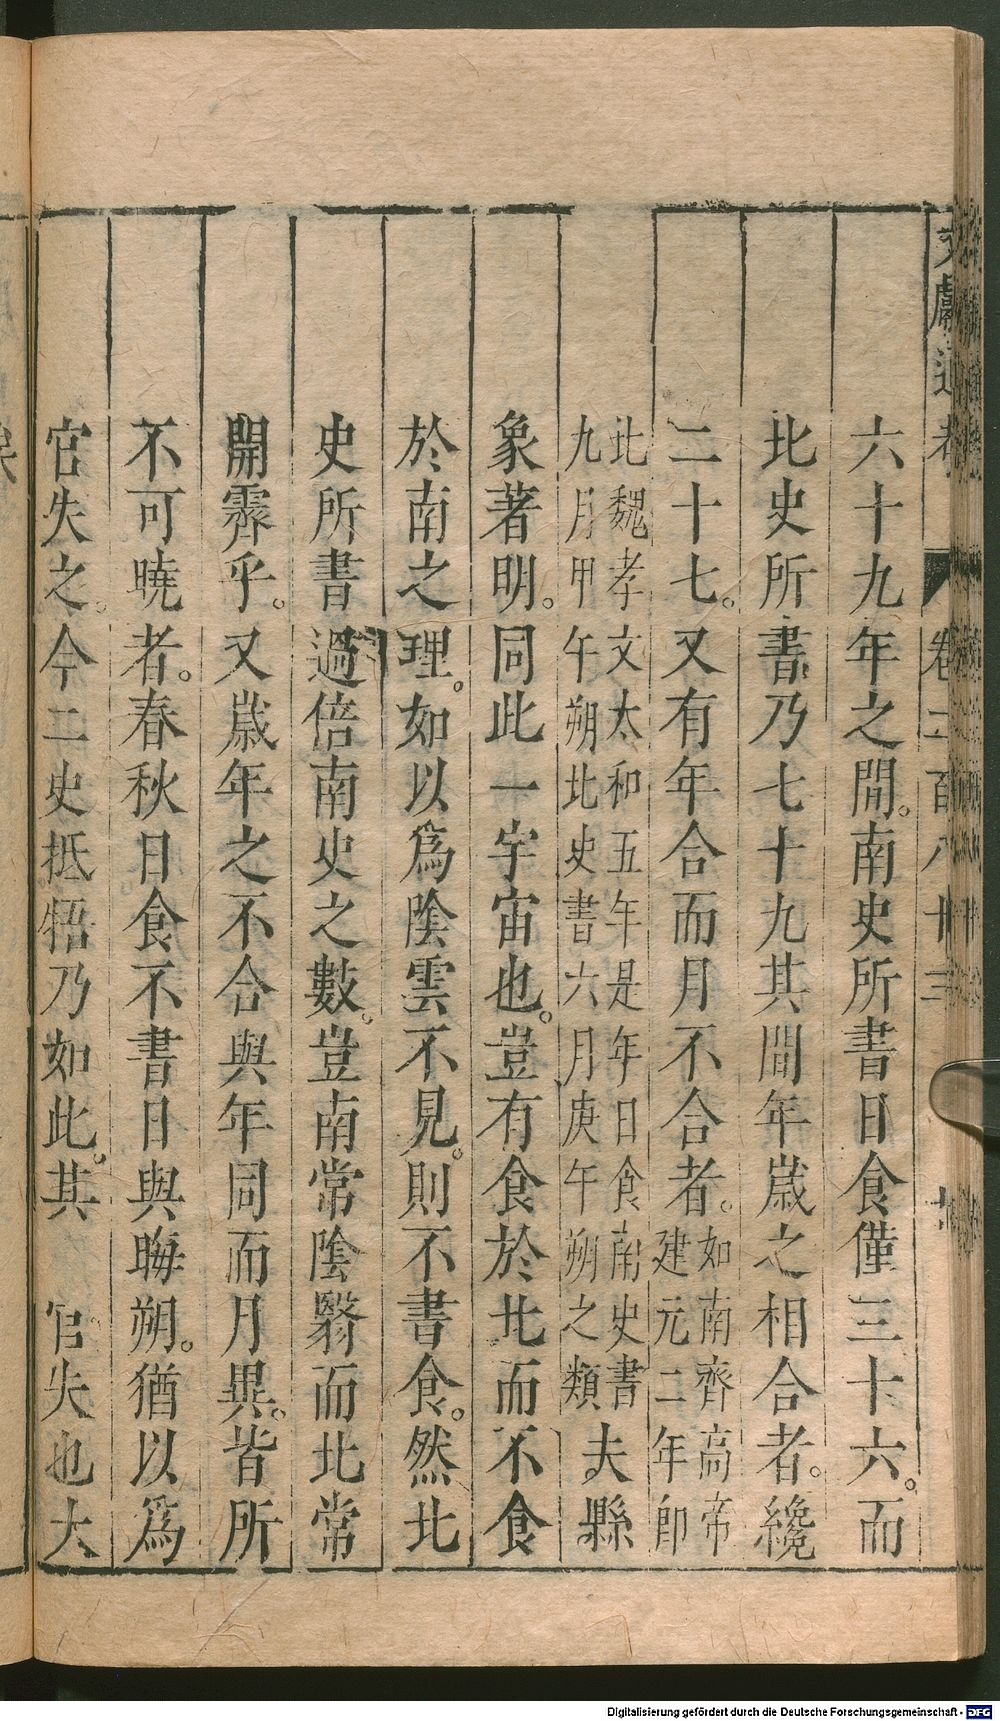 文獻通考 卷二百八十三
六十九年之間。南史所書日食僅三十六。而
北史所書乃七十九其間年歲之相合者。纔
二十七。又有年合而月不合者。如南齊高帝建元二年即
北魏孝文太和五年是年日食南史書九月甲午朔北史書六月庚午朔之類夫縣
象著明。同此一宇宙也。豈有食於北而不食
於南之理。如以為陰雲不見。則不書食。然北
史所書過倍南史之數。豈南常陰翳而北常
開霽乎。又歲年之不合與年同而月異。皆所
不可曉者。春秋日食不書日與晦朔。猶以為
官失之。今二史抵牾乃如此。其 官失也大
Digitalisierung gefördert durch die Deutsche Forschungsgemeinschaft - DFG